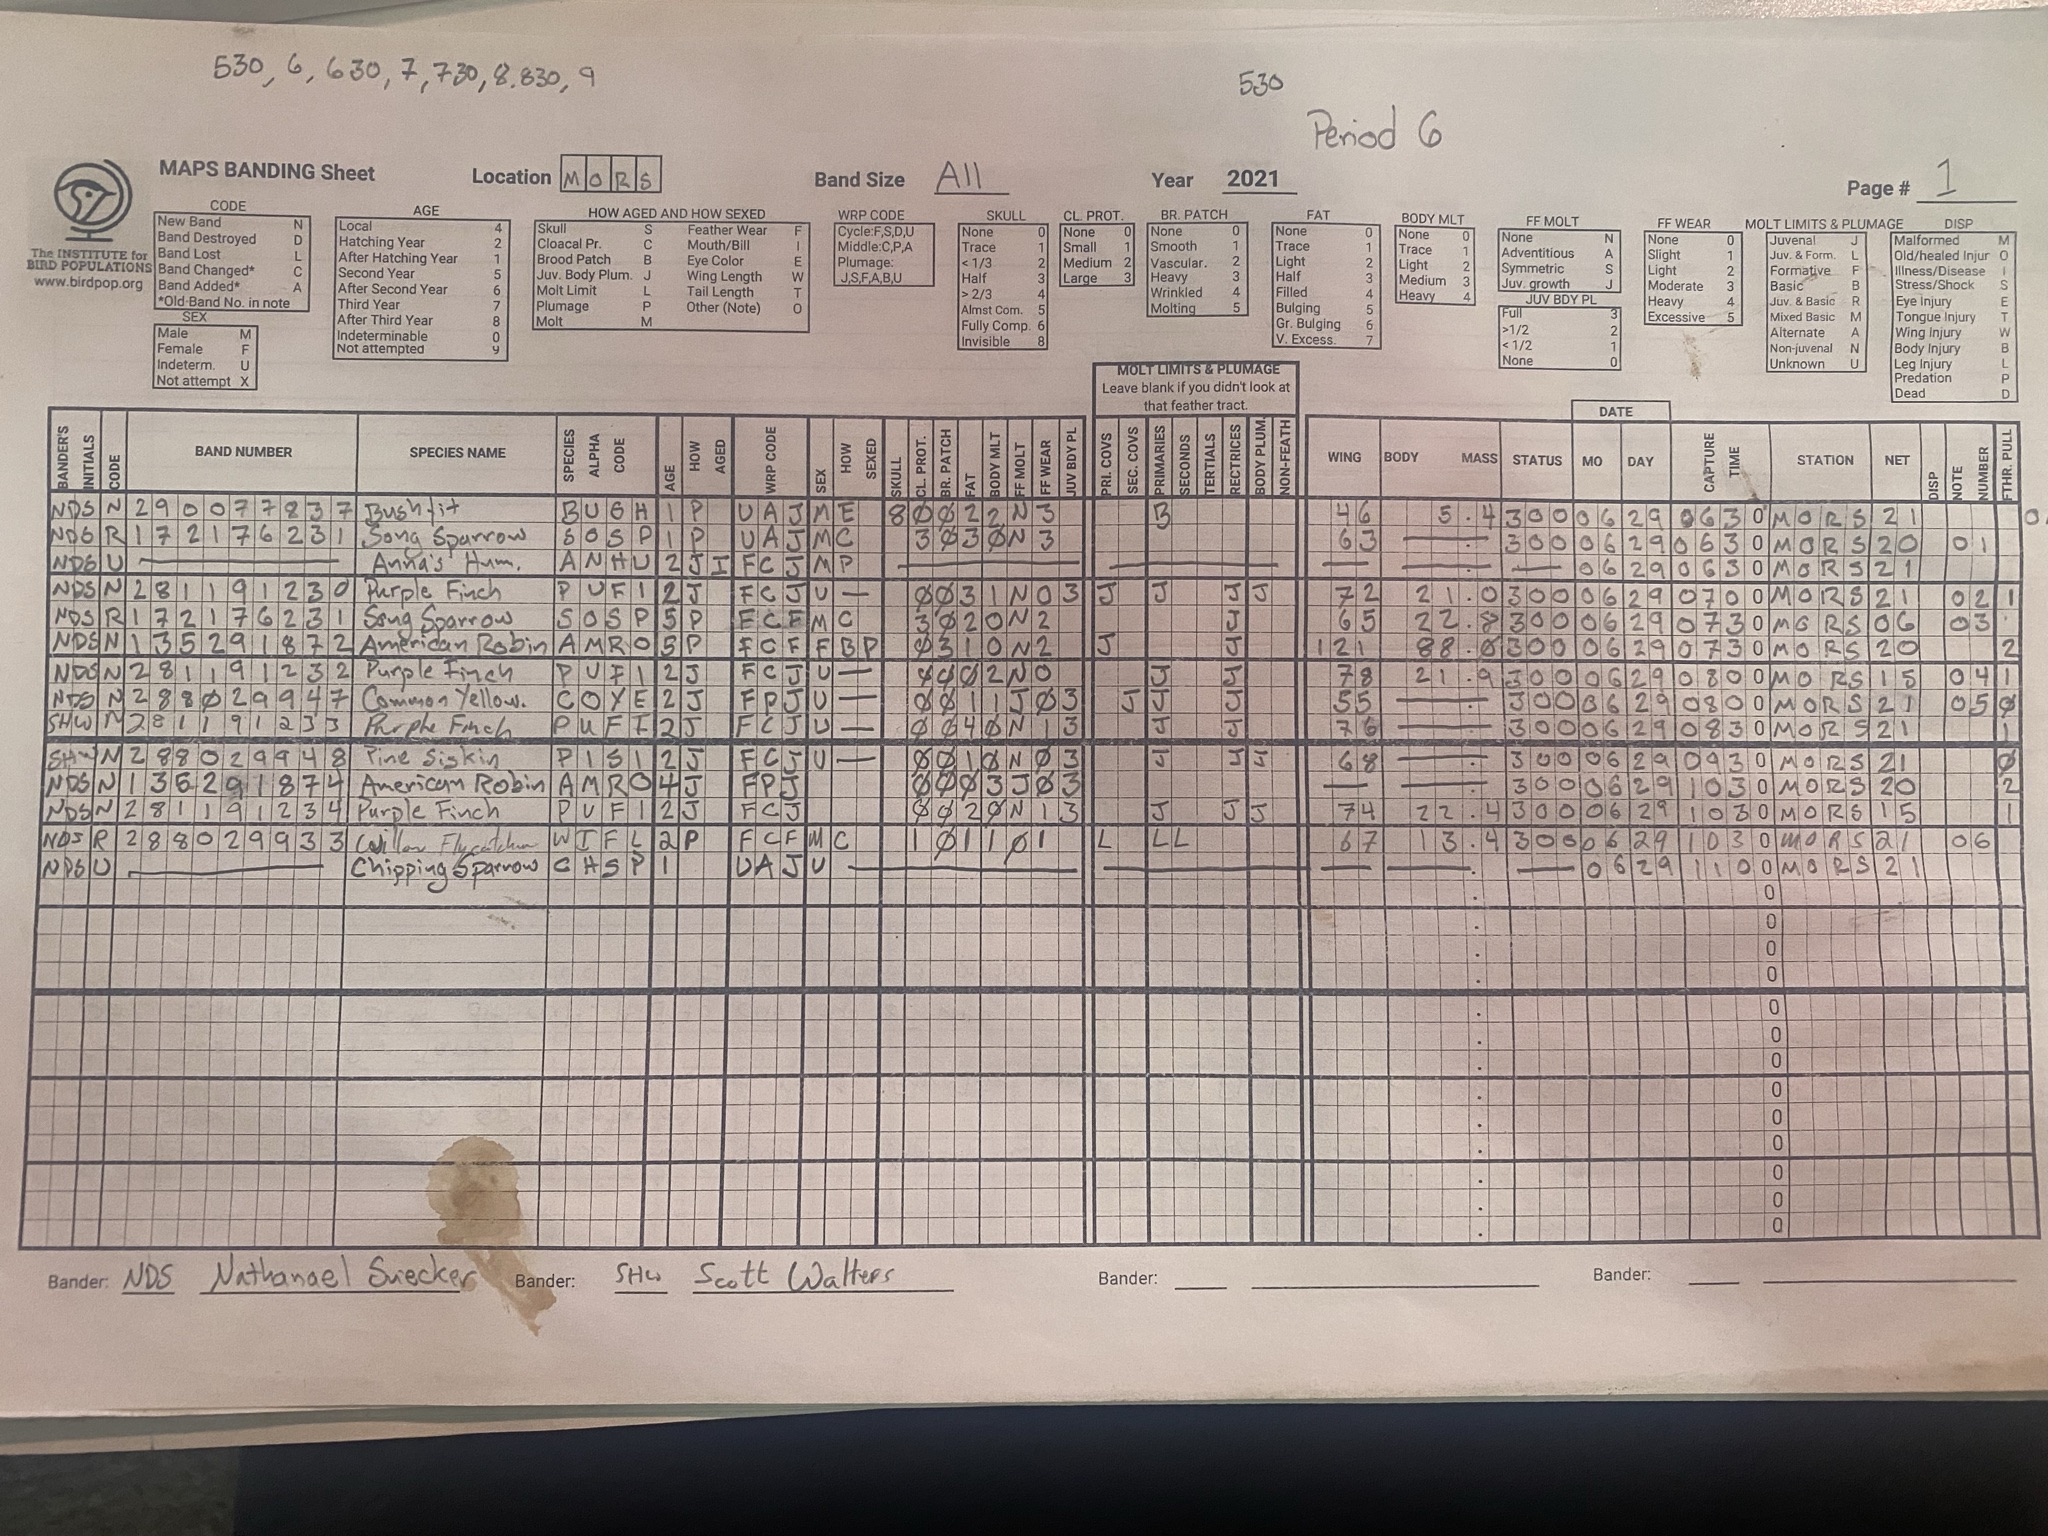 530, 6, 630, 7, 730, 8.830, 9
530
Period 6
MAPS BANDING Sheet
Location M O R S
Band Size All
Year 2021
Page # 1
The INSTITUTE for
BIRD POPULATIONS
www.birdpop.org
CODE
New Band N
Band Destroyed D
Band Lost L
Band Changed* C
Band Added* A
*Old Band No. in note
SEX
Male M
Female F
Indeterm. U
Not attempt X
AGE
Local 4
Hatching Year 2
After Hatching Year 1
Second Year 5
After Second Year 6
Third Year 7
After Third Year 8
Indeterminable 0
Not attempted 9
HOW AGED AND HOW SEXED
Skull S Feather Wear F
Cloacal Pr. C Mouth/Bill I
Brood Patch B Eye Color E
Juv. Body Plum. J Wing Length W
Molt Limit L Tail Length T
Plumage P Other (Note) O
Molt M
WRP CODE
Cycle:F,S,D,U
Middle:C,P,A
Plumage:
J,S,F,A,B,U
SKULL
None 0
Trace 1
< 1/3 2
Half 3
> 2/3 4
Almst Com. 5
Fully Comp. 6
Invisible 8
CL. PROT.
None 0
Small 1
Medium 2
Large 3
BR. PATCH
None 0
Smooth 1
Vascular. 2
Heavy 3
Wrinkled 4
Molting 5
FAT
None 0
Trace 1
Light 2
Half 3
Filled 4
Bulging 5
Gr. Bulging 6
V. Excess. 7
BODY MLT
None 0
Trace 1
Light 2
Medium 3
Heavy 4
FF MOLT
None N
Adventitious A
Symmetric S
Juv. growth J
JUV BDY PL
Full 3
>1/2 2
< 1/2 1
None 0
FF WEAR
None 0
Slight 1
Light 2
Moderate 3
Heavy 4
Excessive 5
MOLT LIMITS & PLUMAGE
Juvenal J
Juv. & Form. L
Formative F
Basic B
Juv. & Basic R
Mixed Basic M
Alternate A
Non-juvenal N
Unknown U
DISP
Malformed M
Old/healed Injur O
Illness/Disease I
Stress/Shock S
Eye Injury E
Tongue Injury T
Wing Injury W
Body Injury B
Leg Injury L
Predation P
Dead D
MOLT LIMITS & PLUMAGE
Leave blank if you didn't look at
that feather tract.
DATE
BANDER'S INITIALS CODE BAND NUMBER SPECIES NAME SPECIES ALPHA CODE AGE HOW AGED WRP CODE SEX HOW SEXED SKULL CL. PROT. BR. PATCH FAT BODY MLT FF MOLT FF WEAR JUV BDY PL PRI. COVS SEC. COVS PRIMARIES SECONDS TERTIALS RECTRICES BODY PLUM. NON-FEATH WING BODY MASS STATUS MO DAY CAPTURE TIME STATION NET DISP NOTE NUMBER FTHR. PULL
NDS N 290077837 Bushtit BUSH 1 P UAJ M E 8 Ø Ø 2 2 N 3 B 46 5.4 300 06 29 0630 MORS 21 0
NDS R 172176231 Song Sparrow SOSP 1 P UAJ M C 3 Ø 3 Ø N 3 63 300 06 29 0630 MORS 20 01
NDS U Anna's Hum. ANHU 2 J I FCJ M P 06 29 0630 MORS 21
NDS N 281191230 Purple Finch PUFI 2 J FCJ U — Ø Ø 3 1 N 0 3 J J J J 72 21.0 300 06 29 0700 MORS 21 02 1
NDS R 172176231 Song Sparrow SOSP 5 P FCF M C 3 Ø 2 0 N 2 J 65 22.8 300 06 29 0730 MORS 06 03
NDS N 135291872 American Robin AMRO 5 P FCF F B P Ø 3 1 0 N 2 J J 121 88.0 300 06 29 0730 MORS 20 2
NDS N 281191232 Purple Finch PUFI 2 J FCJ U — Ø Ø Ø 2 N 0 J J 78 21.9 300 06 29 0800 MORS 15 04 1
NDS N 288029947 Common Yellow. COYE 2 J FPJ U — Ø Ø 1 1 J Ø 3 J J J 55 300 06 29 0800 MORS 21 05 Ø
SHW N 281191233 Purple Finch PUFI 2 J FCJ U — Ø Ø 4 Ø N 1 3 J J 76 300 06 29 0830 MORS 21 1
SHW N 288029948 Pine Siskin PISI 2 J FCJ U — Ø Ø 1 Ø N Ø 3 J J J 68 300 06 29 0930 MORS 21 Ø
NDS N 135291874 American Robin AMRO 4 J FPJ Ø Ø Ø 3 J Ø 3 300 06 29 1030 MORS 20 2
NDS N 281191234 Purple Finch PUFI 2 J FCJ Ø Ø 2 Ø N 1 3 J J J 74 22.4 300 06 29 1030 MORS 15 1
NDS R 288029933 Willow Flycatcher WIFL 2 P FCF M C 1 Ø 1 1 Ø 1 L L L 67 13.4 300 06 29 1030 MORS 21 06
NDS U Chipping Sparrow CHSP 1 UAJ U 06 29 1100 MORS 21
0
0
0
0
0
0
0
0
0
0
0
0
0
Bander: NDS Nathanael Swecker Bander: SHW Scott Walters Bander: Bander: